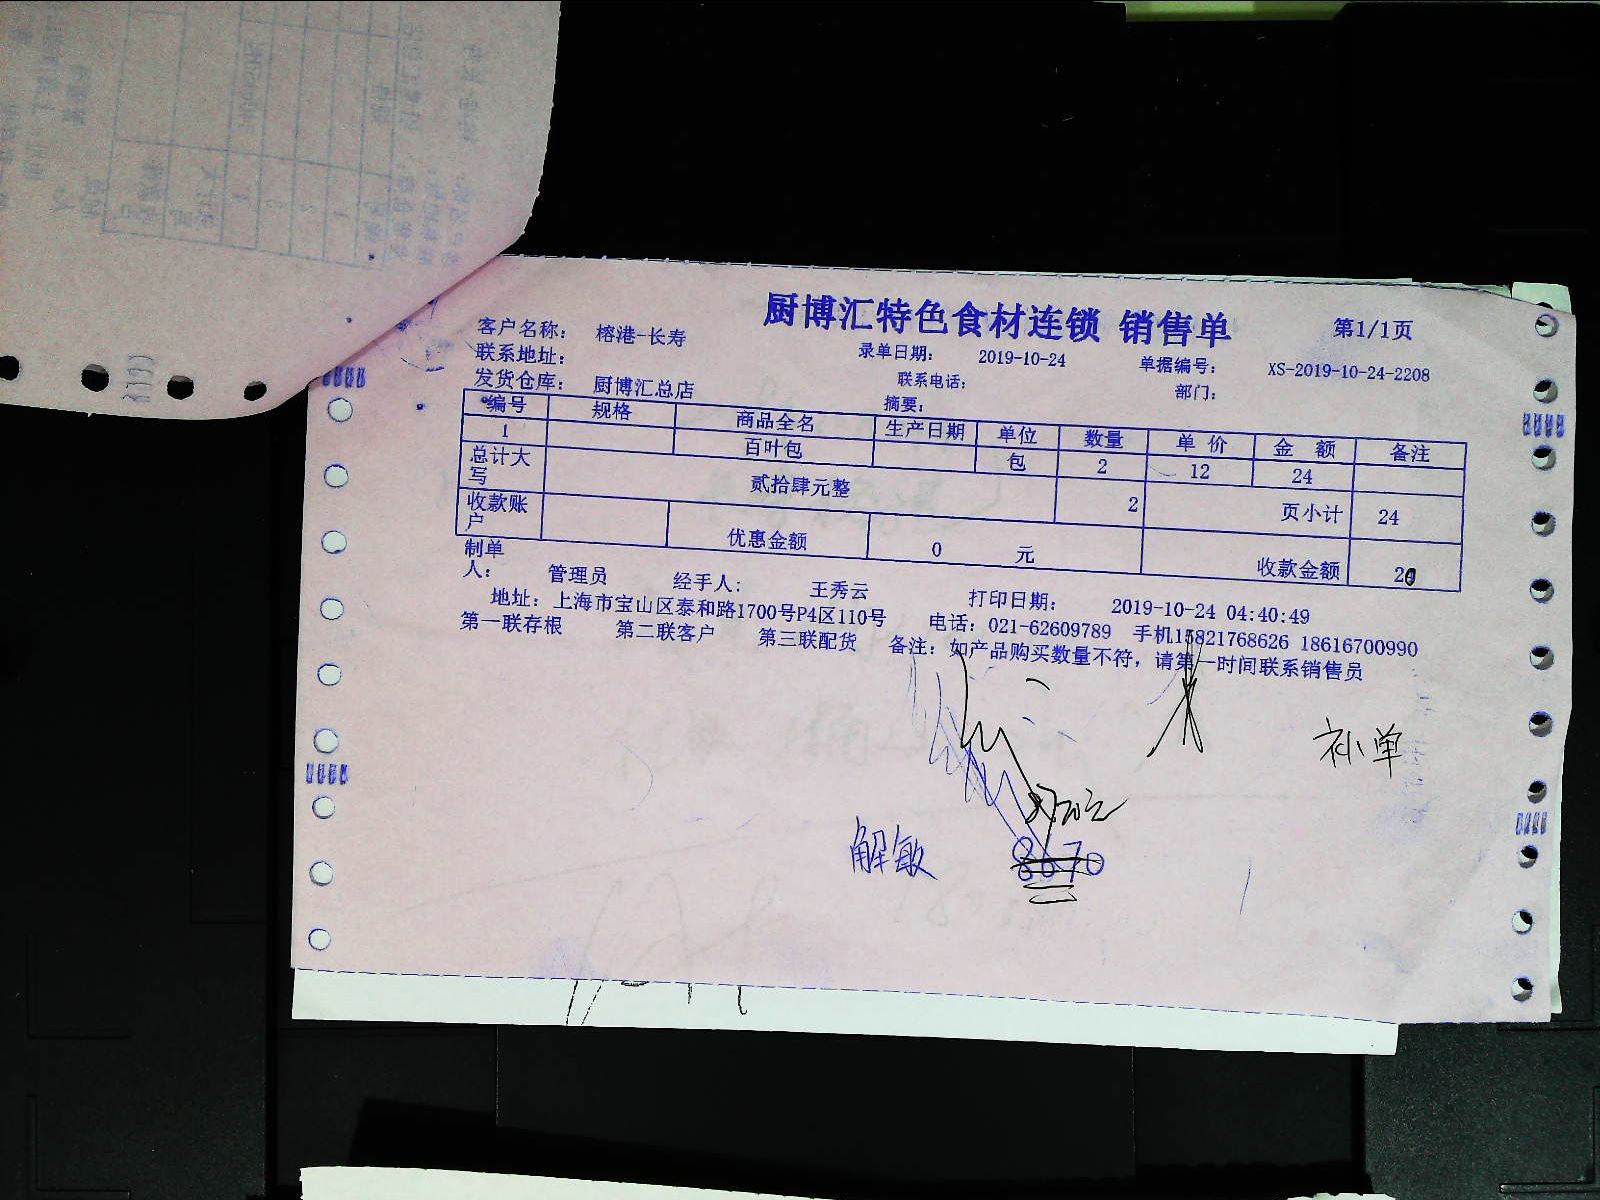 厨博汇特色食材连锁 销售单 第1/1页
客户名称： 榕港-长寿 录单日期： 2019-10-24 单据编号： XS-2019-10-24-2208
联系地址： 联系电话： 部门：
发货仓库： 厨博汇总店 摘要：
编号 规格 商品全名 生产日期 单位 数量 单 价 金 额 备注
1 百叶包 包 2 12 24
总计大写 贰拾肆元整 2 页小计 24
收款账户 优惠金额 0 元 收款金额
制单人： 管理员 经手人： 王秀云 打印日期： 2019-10-24 04:40:49
地址：上海市宝山区泰和路1700号P4区110号 电话：021-62609789 手机15821768626 18616700990
第一联存根 第二联客户 第三联配货 备注：如产品购买数量不符，请第一时间联系销售员
补单
解敏 8670